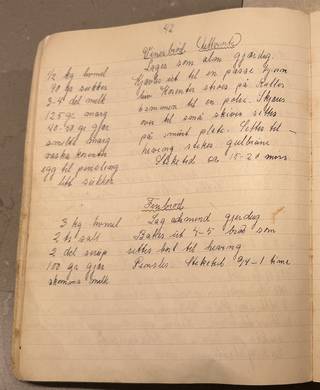 42
Wienerbrød
1/2 kg hvmel
90 gr sukker
3-4 del melk
125 gr marg
40-50 gr gjær
smeltet marg
vaske korenter
egg til pensling
litt sukker
Lages som alm gjærdeig.
Kjevles ut til en passe tynn
Korenter strøes på Rulles
sammen til en pølse. Skjæres
over til små skiver settes
på smurt plate. Settes til
heving stekes gulbrune
Steketid ca 15-20 min.
Finbrød
3 kg hvmel
2 ts salt
2 del sirup
100 gr gjær
skumma melk
Lag alminnd gjærdeig.
Bakes ut 4-5 brød som
settes bort til heving
Pensles. Steketid 3/4-1 time